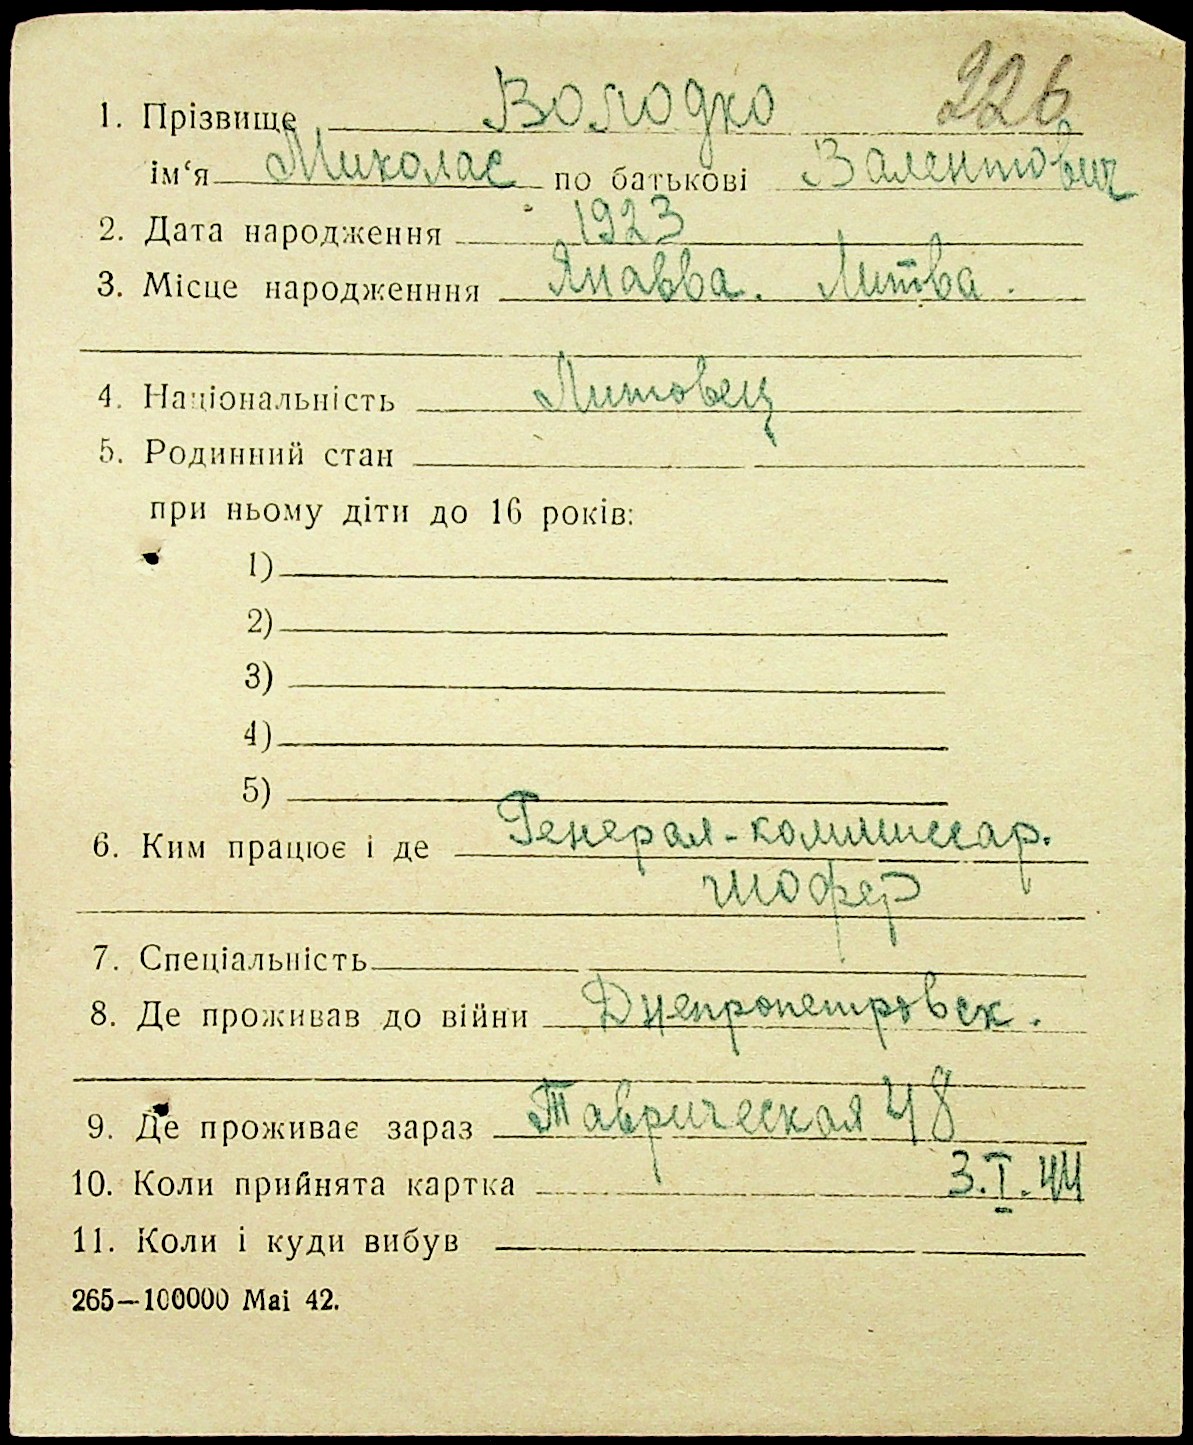 226
1. Прізвище Володко
ім‘я Миколас по батькові Валентович
2. Дата народження 1923
3. Місце народженння Янавва. Литва.
4. Національність Литовец
5. Родинний стан
при ньому діти до 16 років:
1)
2)
3)
4)
5)
6. Ким працює і де Генерал-коммиссар.
шофер
7. Спеціальність
8. Де проживав до війни Днепропетровск.
9. Де проживає зараз Таврическая 48
10. Коли прийнята картка 3.I.44
11. Коли і куди вибув
265—100000 Mai 42.